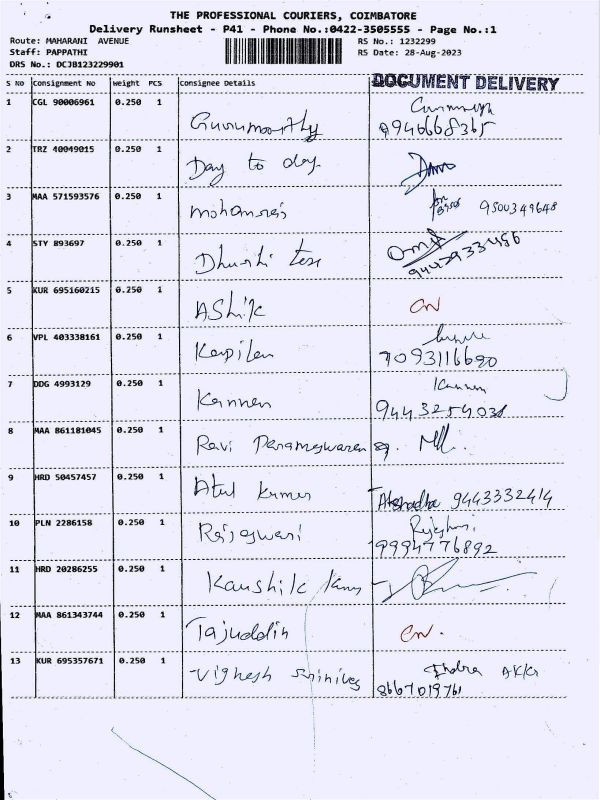 THE PROFESSIONAL COURIERS, COIMBATORE
Delivery Runsheet - P41 - Phone No.:0422-3505555 - Page No.:1
Route: MAHARANI AVENUE RS No.: 1232299
Staff: PAPPATHI RS Date: 28-Aug-2023
DRS No.: DCJB123229901
DOCUMENT DELIVERY
S NO Consignment No Weight PCS Consignee Details
1 CGL 90006961 0.250 1 Gurumoorthy
2 TRZ 40049015 0.250 1 Day to day
3 MAA 571593576 0.250 1 mohanraj 9500349648
4 STY 893697 0.250 1 Dhurthi Tex 9442933456
5 KUR 695160215 0.250 1 AShik
6 VPL 403338161 0.250 1 Kapilan
7093116690
7 DDG 4993129 0.250 1 Kannan Kannan
9443254038
8 MAA 861181045 0.250 1 Ravi Parameswaran
9 HRD 50457457 0.250 1 Atul Kumar 9443332414
10 PLN 2286158 0.250 1 Rajeswari
9994776892
11 HRD 20286255 0.250 1 Kaushik
12 MAA 861343744 0.250 1 Tajuddin
13 KUR 695357671 0.250 1 Vighesh Srinivas Indra
8667019761